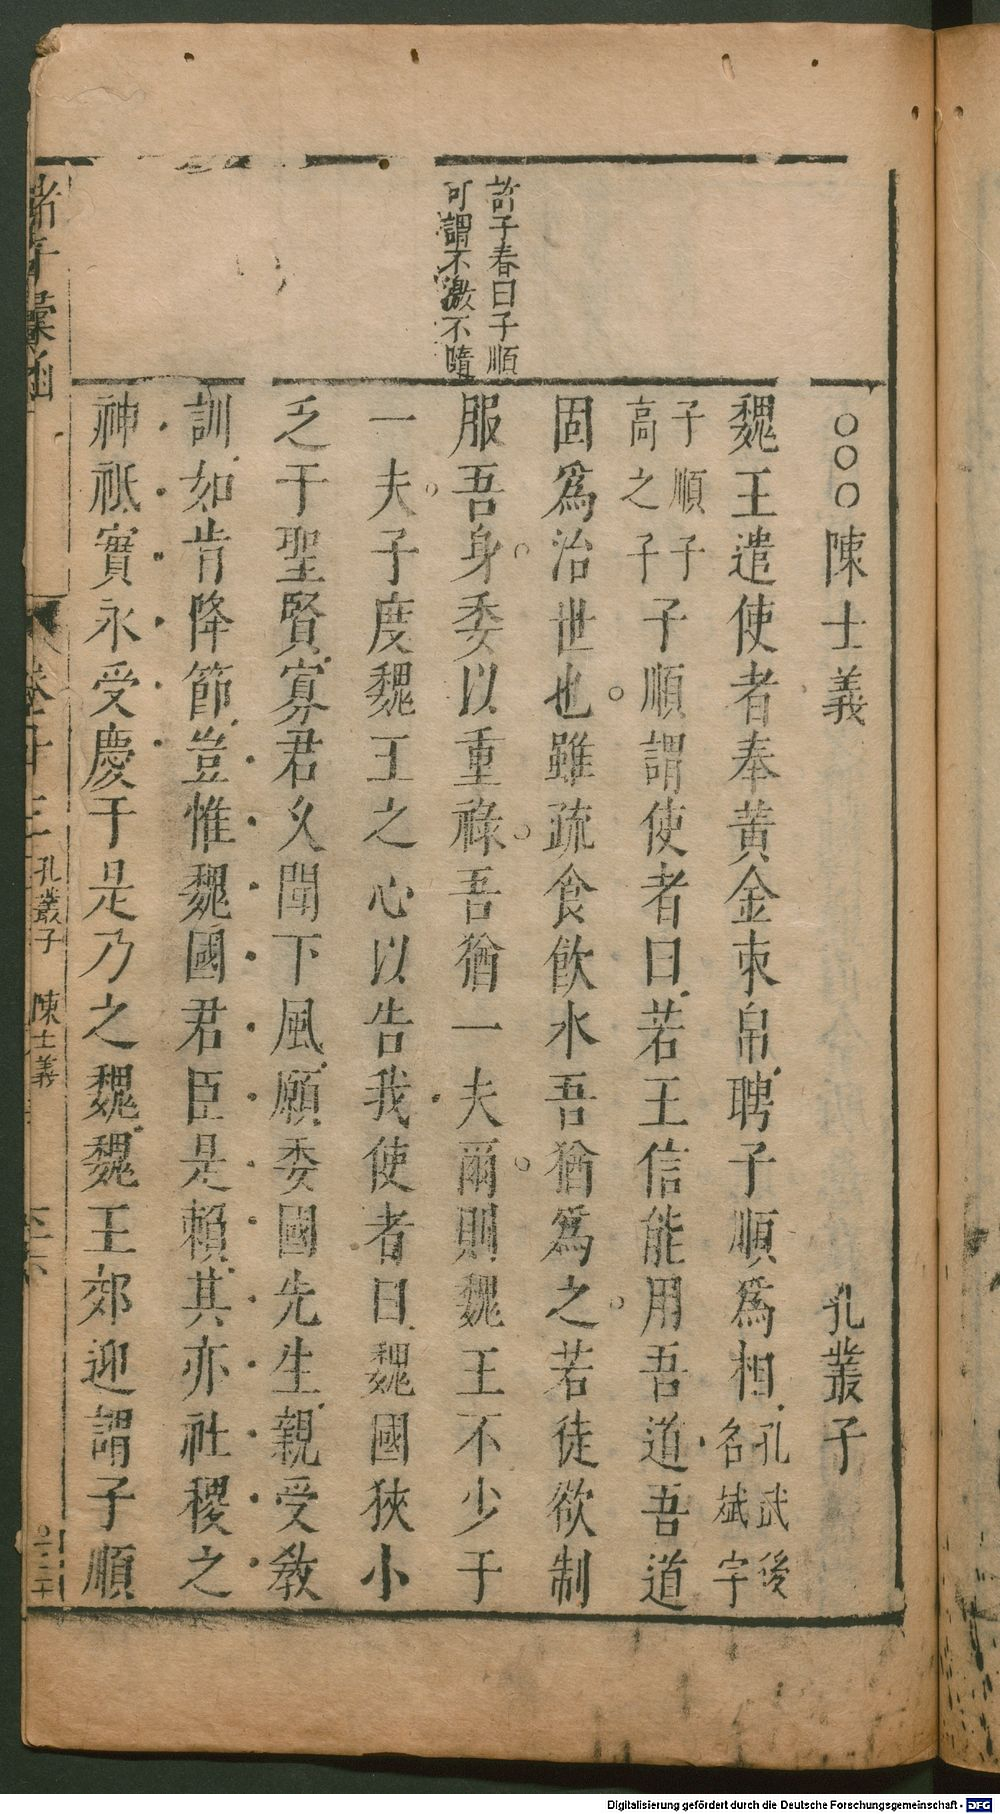 ○○○陳士義　孔叢子
魏王遣使者奉黃金束帛聘子順爲相孔武後
名斌字
子順子
高之子
子順謂使者曰若王信能用吾道吾道
固爲治世也雖疏食飲水吾猶爲之若徒欲制
服吾身委以重祿吾猶一夫爾則魏王不少于
一夫子度魏王之心以告我使者曰魏國狹小
乏于聖賢寡君久聞下風願委國先生親受教
訓如肯降節豈惟魏國君臣是賴其亦社稷之
神祇實永受慶于是乃之魏魏王郊迎謂子順
許子春曰子順
可謂不激不隨
諸子彙函
卷之十三
孔叢子　陳士義
Digitalisierung gefördert durch die Deutsche Forschungsgemeinschaft - DFG